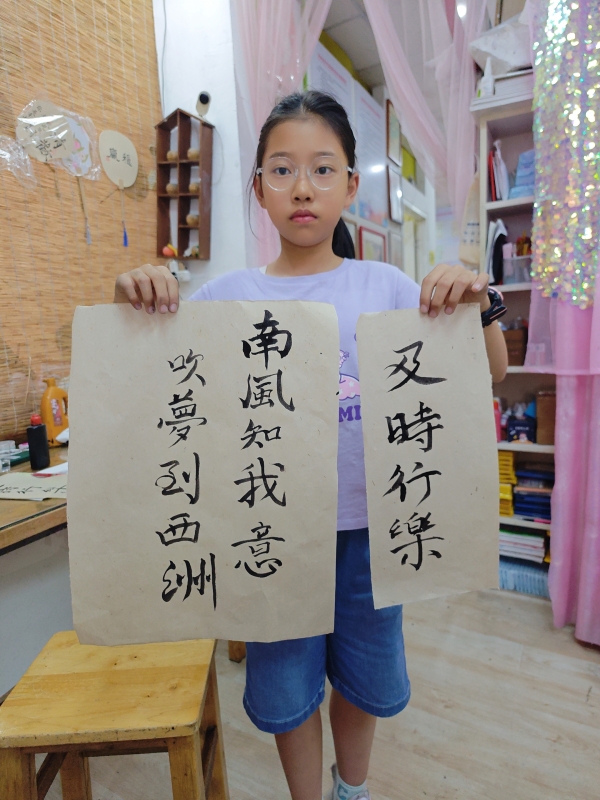 及時行樂
南風知我意
吹夢到西洲